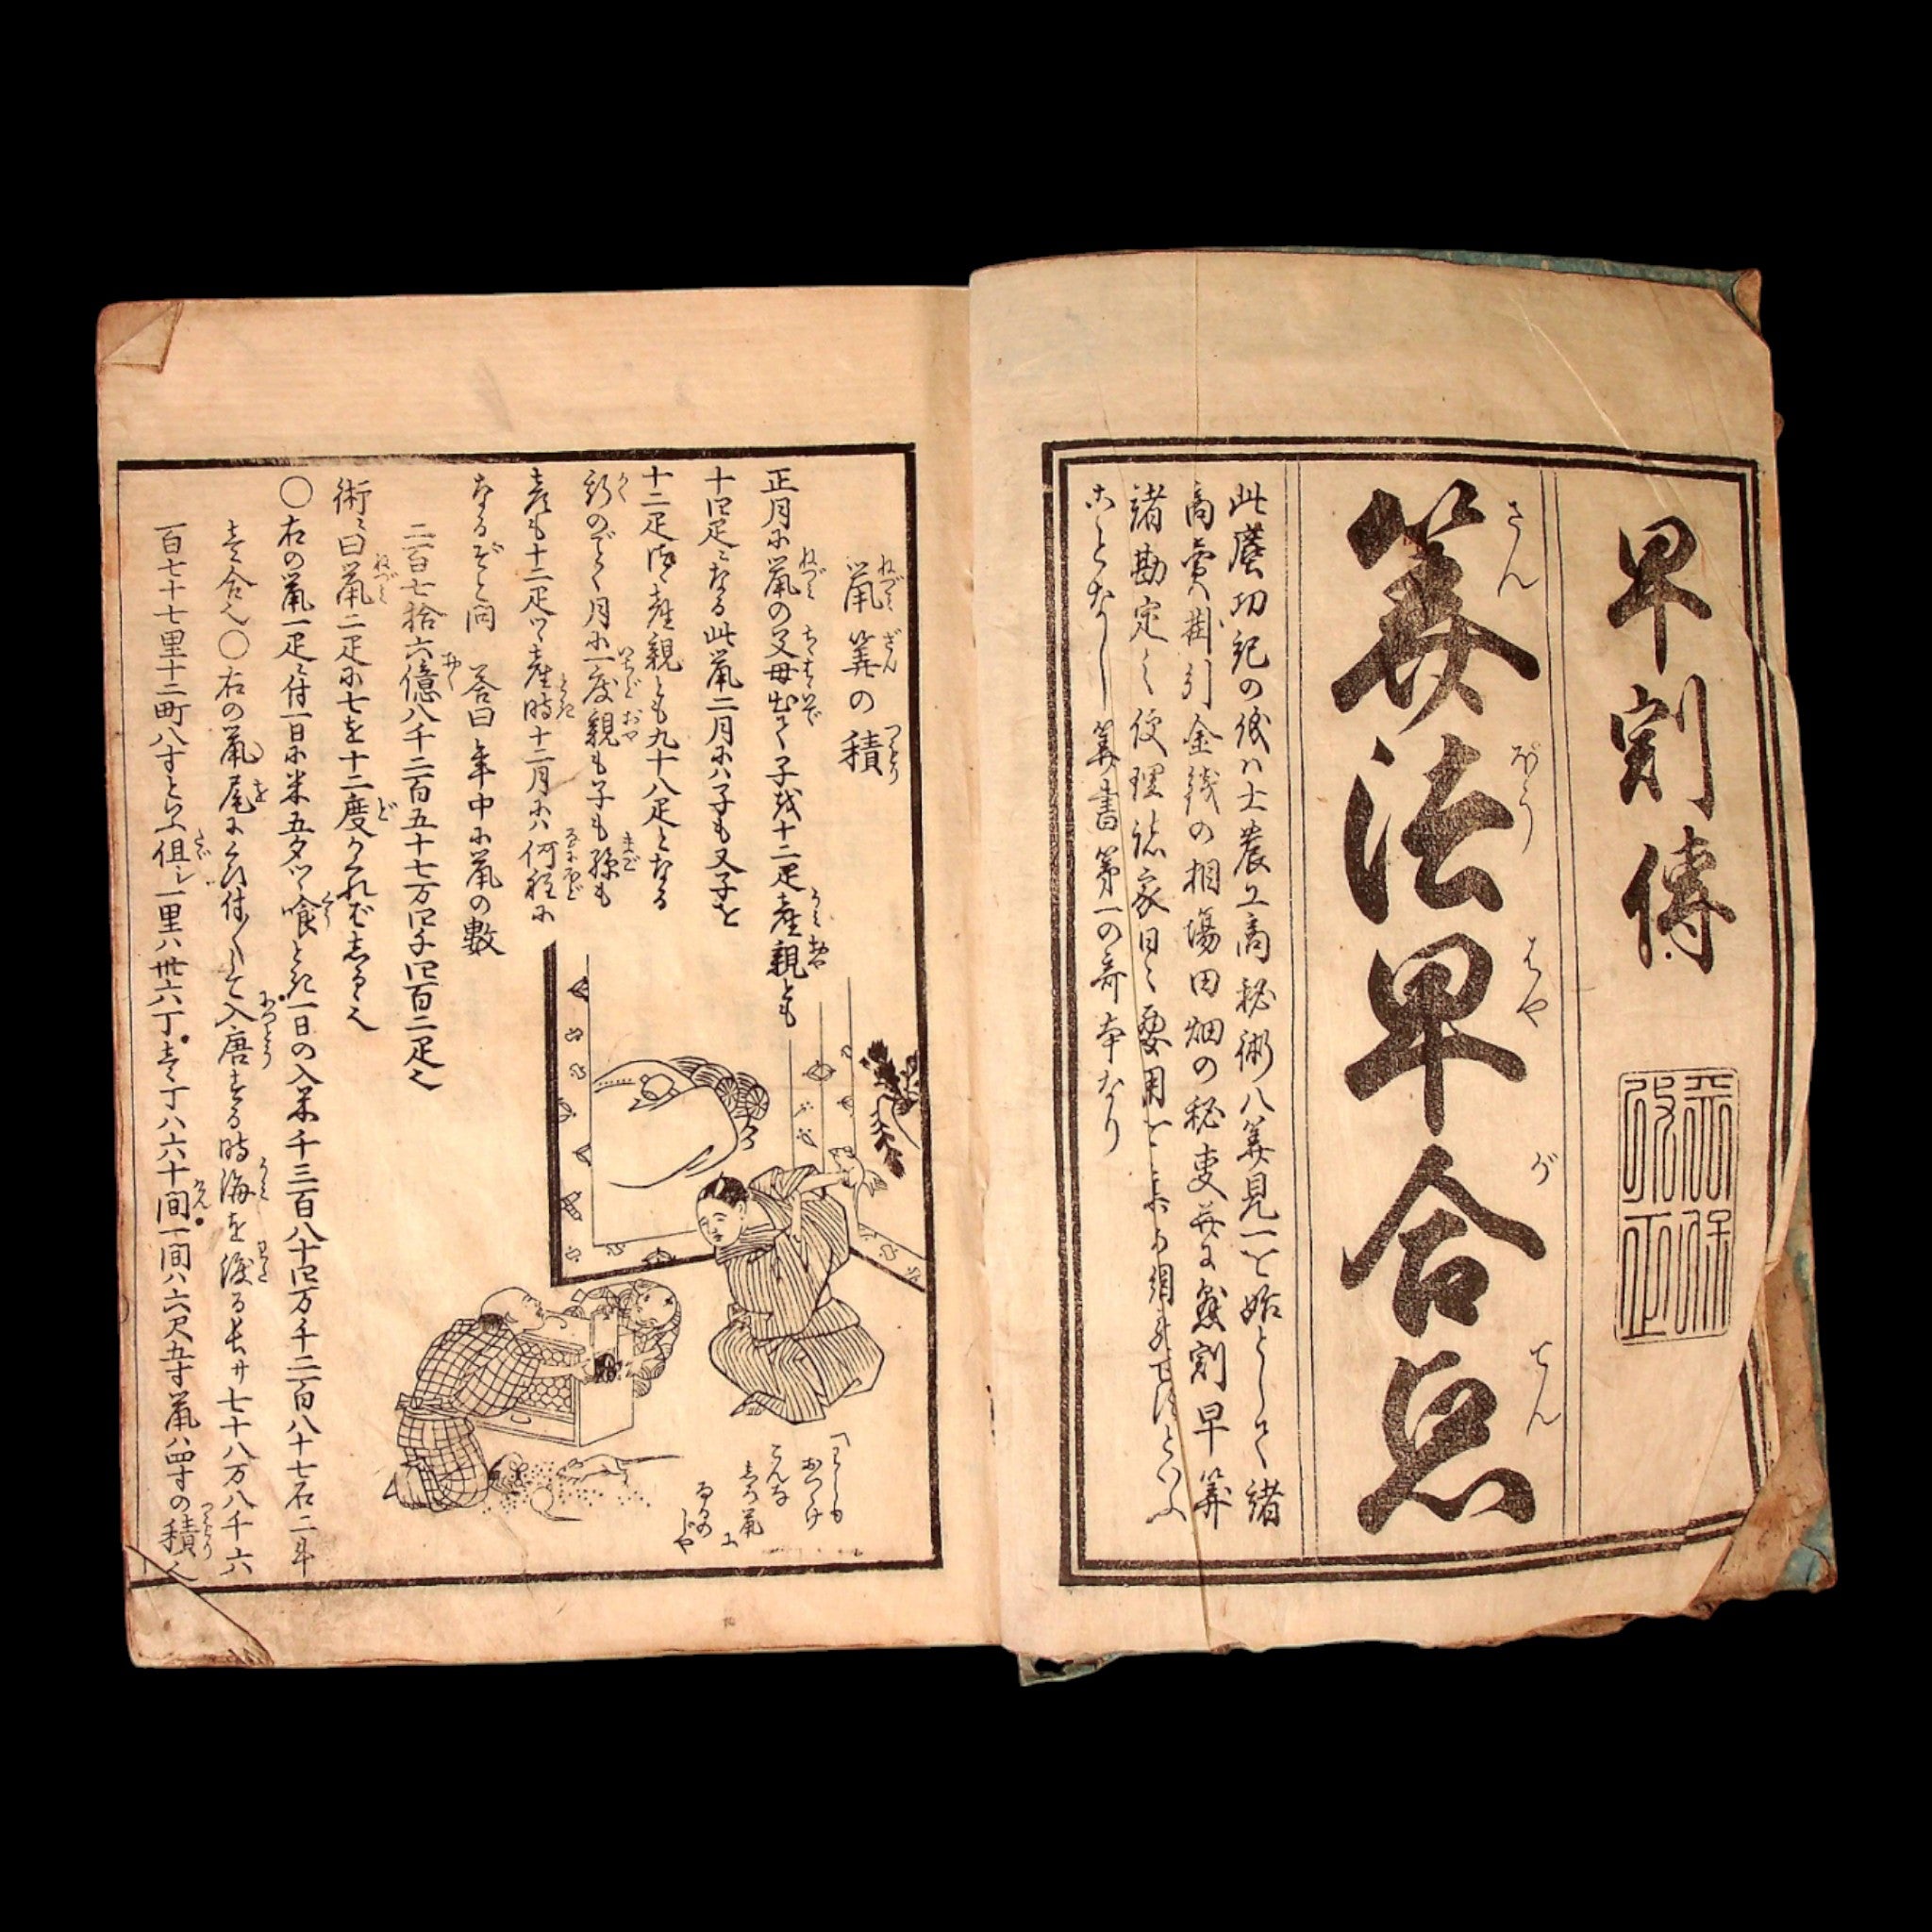 早割傳
天保
改正
算法早合点
さんぽうはやがてん
此塵劫記の儀ハ士農工商秘術八算見一を始として諸
商賣掛引金銭の相場田畑の秘事并に異割早算
諸勘定之便理諸家日々要用を
ことなし算書第一の奇本なり
鼠算の積
ねづみざん つもり
正月に鼠の父母出て子を十二疋産親とも
十四疋になる此鼠二月にハ子も又子を
十二疋ヅヽ産親とも九十八疋となる
斯のごとく月に一度親も子も孫も
彦も十二疋ヅヽ産時十二月にハ何程に
なるぞと問 答曰年中に鼠の數
二百七拾六億八千二百五十七万四千四百二疋也
術ニ曰鼠二疋に七を十二度かくれバしるゝ也
〇右の鼠一疋ニ付一日に米五夕ヅヽ喰とき一日の入米千三百八十四万千二百八十七石二斗
壱合也〇右の鼠尾にくひ付〳〵して入唐する時海を渡る長サ七十八万八千六
百七十七里十二町八寸といふ但シ一里ハ卅六丁壱丁ハ六十間一間ハ六尺五寸鼠ハ四寸の積也
こんな
しろ鼠